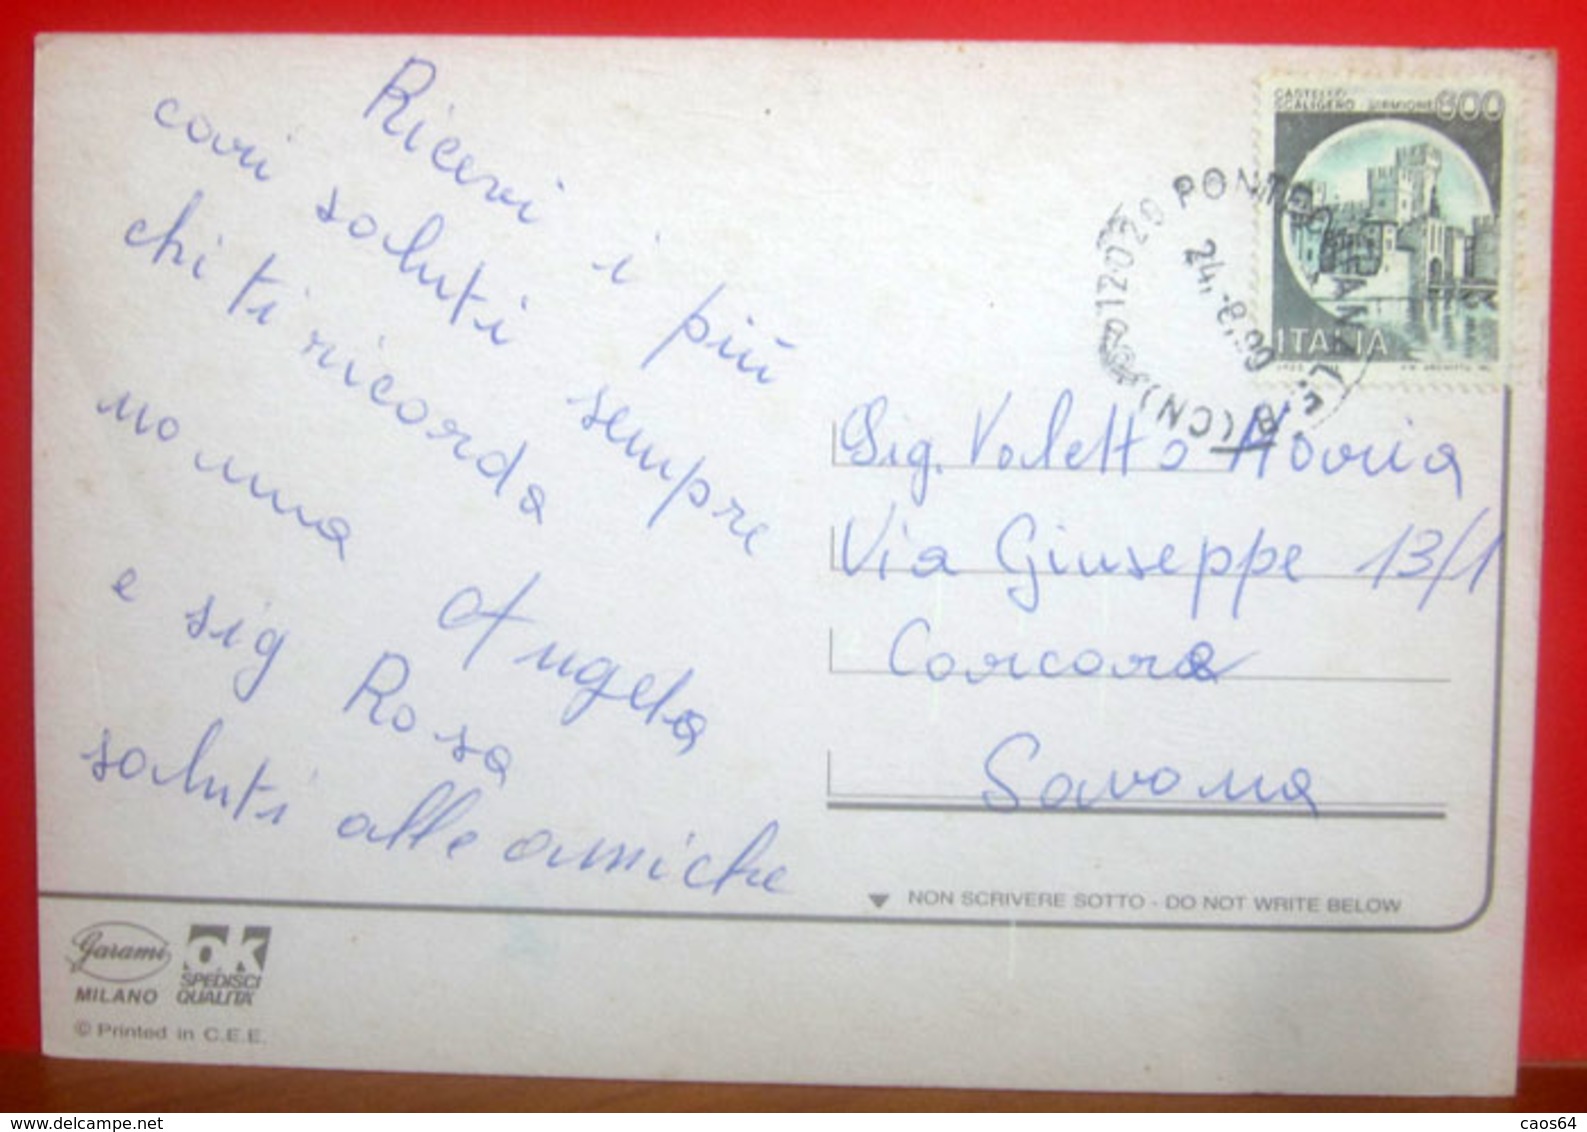 Ricevi i più
cari saluti sempre
chi ti ricorda
nonna Angela
e sig Rosa
saluti alle amiche
CASTELLO
SCALIGERO SIRMIONE 600
ITALIA
12020 PONTE (CN)
24.-8.90
Sig. Valetto Maria
Via Giuseppe 13/1
Carcare
Savona
NON SCRIVERE SOTTO - DO NOT WRITE BELOW
Garami
MILANO
OK
SPEDISCI
QUALITA'
© Printed in C.E.E.
www.delcampe.net
caos64